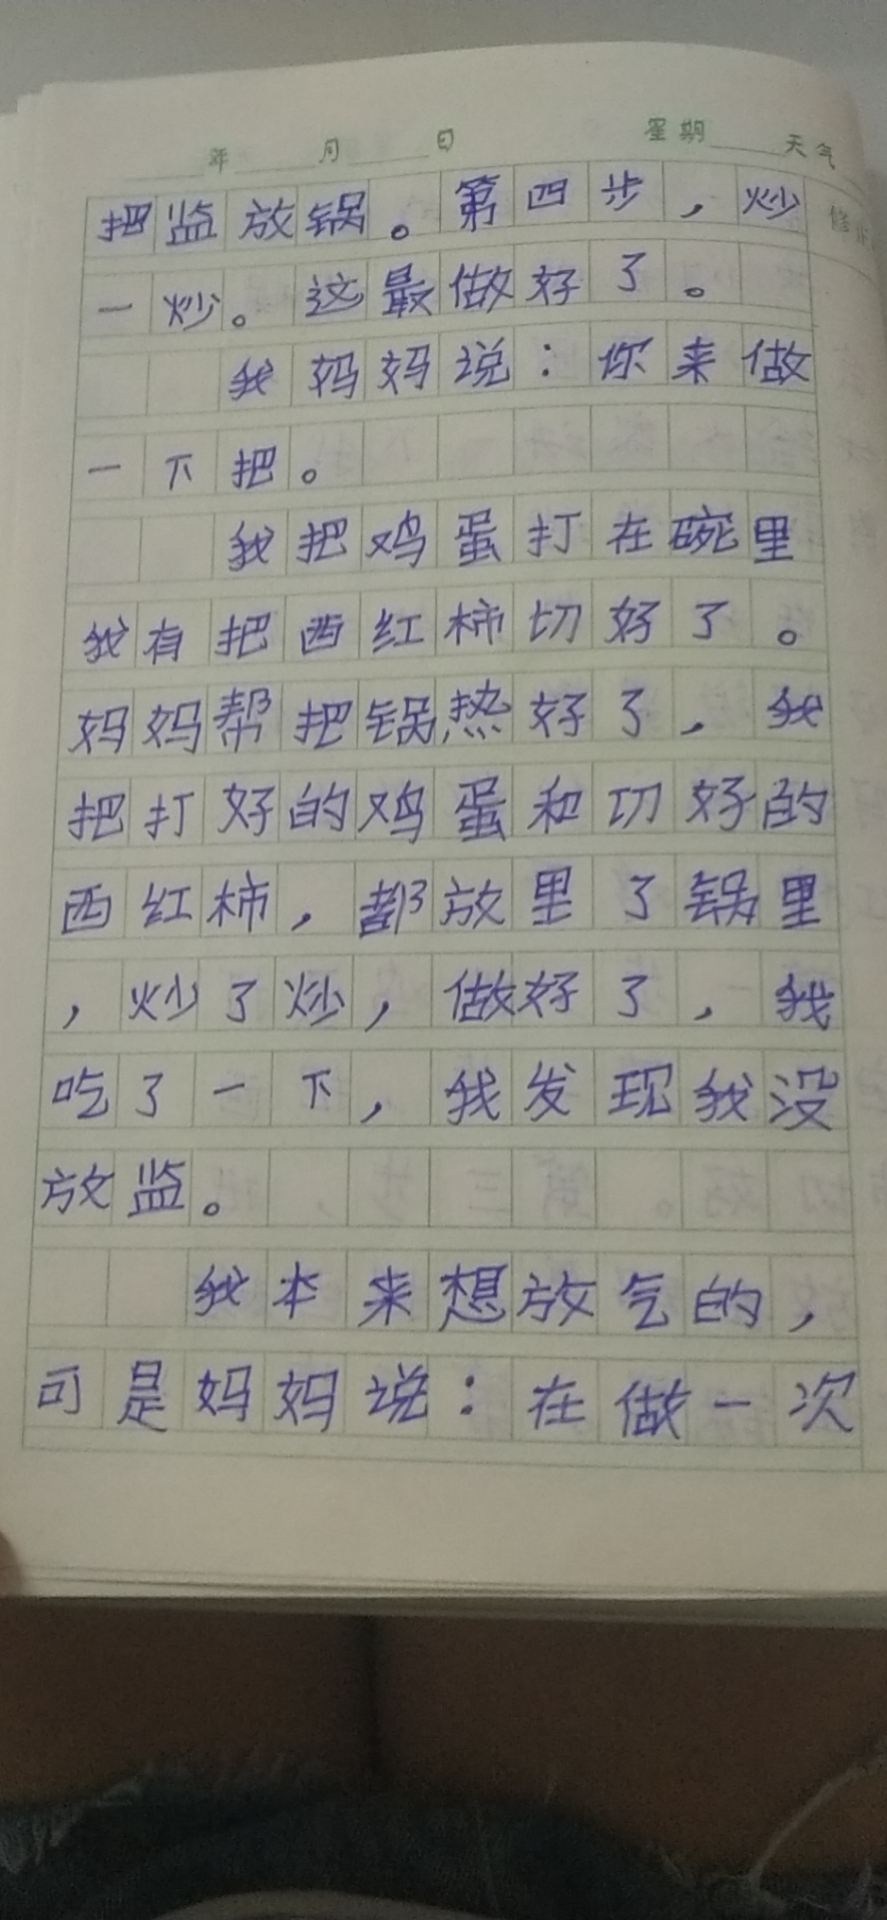 年 月 日 星期 天气
把监放锅。第四步，炒
一炒。这最做好了。
我妈妈说：你来做
一下把。
我把鸡蛋打在碗里
我有把西红柿切好了。
妈妈帮把锅热好了，我
把打好的鸡蛋和切好的
西红柿，都放里了锅里
，炒了炒，做好了，我
吃了一下，我发现我没
放监。
我本来想放气的，
可是妈妈说：在做一次